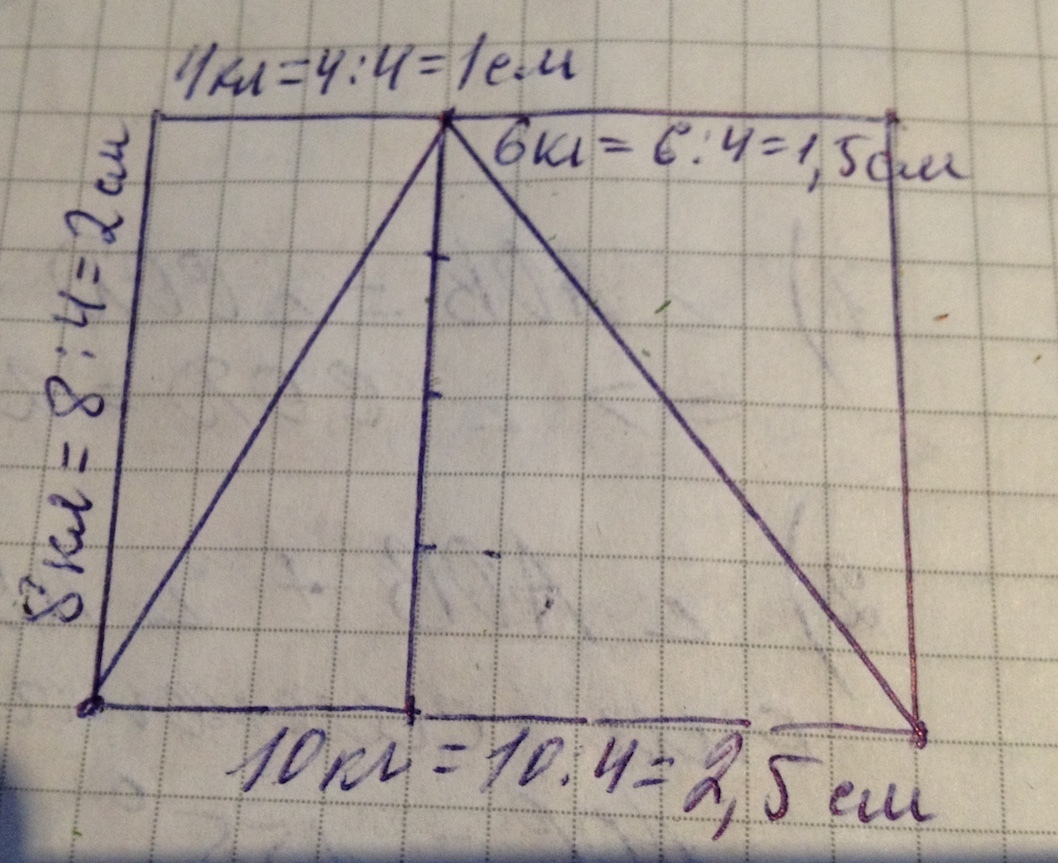 4кл=4:4=1см
6кл=6:4=1,5см
8кл=8:4=2см
10кл=10:4=2,5см